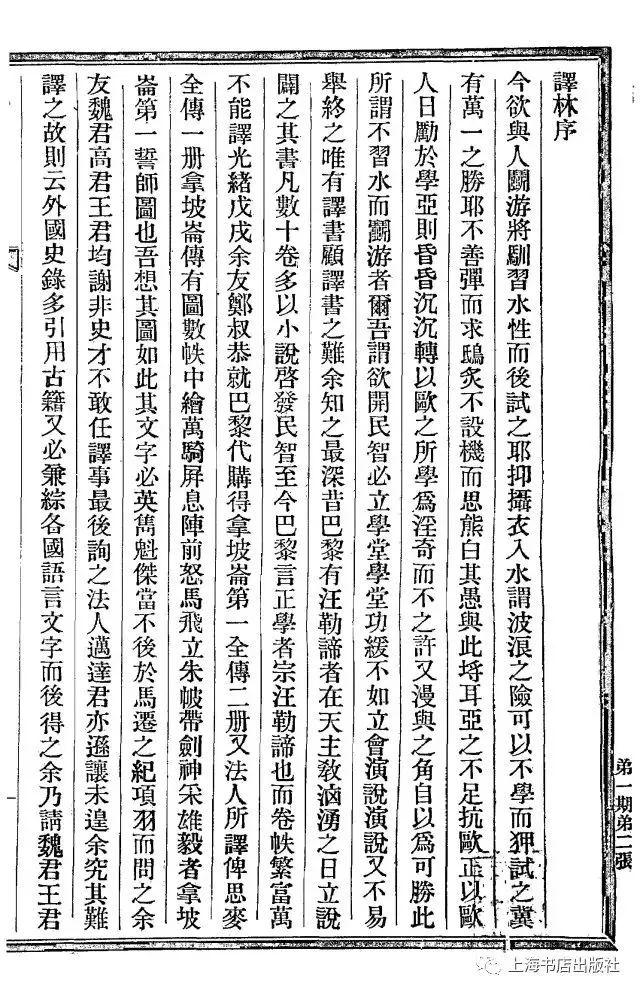 譯林序
今欲與人鬭游將馴習水性而後試之耶抑攝衣入水謂波浪之險可以不學而狎試之冀
有萬一之勝耶不善彈而求鴟炙不設機而思熊白其愚與此埒耳亞之不足抗歐正以歐
人日勵於學亞則昏昏沉沉轉以歐之所學爲淫奇而不之許又漫與之角自以爲可勝此
所謂不習水而鬭游者爾吾謂欲開民智必立學堂學堂功緩不如立會演說演說又不易
舉終之唯有譯書顧譯書之難余知之最深昔巴黎有汪勒諦者在天主教洶湧之日立說
闢之其書凡數十卷多以小說啓發民智至今巴黎言正學者宗汪勒諦也而卷帙繁富萬
不能譯光緒戊戌余友鄭叔恭就巴黎代購得拿坡崙第一全傳二册又法人所譯俾思麥
全傳一册拿坡崙傳有圖數帙中繪萬騎屛息陣前怒馬飛立朱帔帶劍神采雄毅者拿坡
崙第一誓師圖也吾想其圖如此其文字必英雋魁傑當不後於馬遷之紀項羽而問之余
友魏君高君王君均謝非史才不敢任譯事最後詢之法人邁達君亦遜讓未遑余究其難
譯之故則云外國史錄多引用古籍又必兼綜各國語言文字而後得之余乃請魏君王君
第一期第二張
上海书店出版社